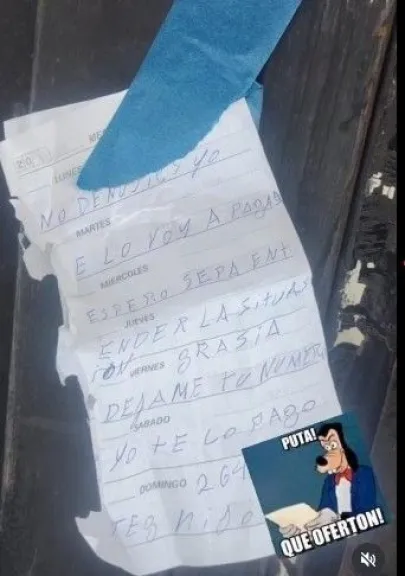 20
LUNES
NO DENUSIES YO
MARTES
E LO VOY A PAGAR
MIERCOLES
ESPERO SEPA ENT
JUEVES
ENDER LA SITUAS
ION VIERNES GRASIA
DEJAME TU NUMER
SABADO
YO TE LO PAGO
DOMINGO 264
PUTA!
QUE OFERTON!